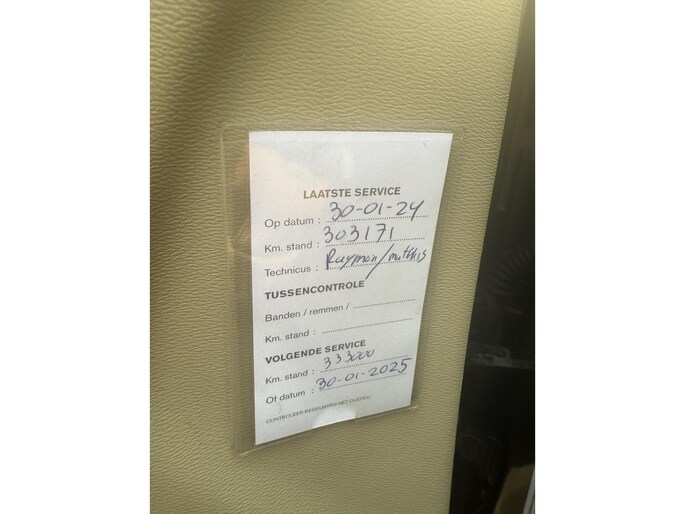 LAATSTE SERVICE
Op datum : 30-01-24
Km. stand : 303171
Technicus : Raymon/mathijs
TUSSENCONTROLE
Banden / remmen /
Km. stand :
VOLGENDE SERVICE
Km. stand : 333000
Of datum : 30-01-2025
CONTROLEER REGELMATIG HET OLIEPEIL!